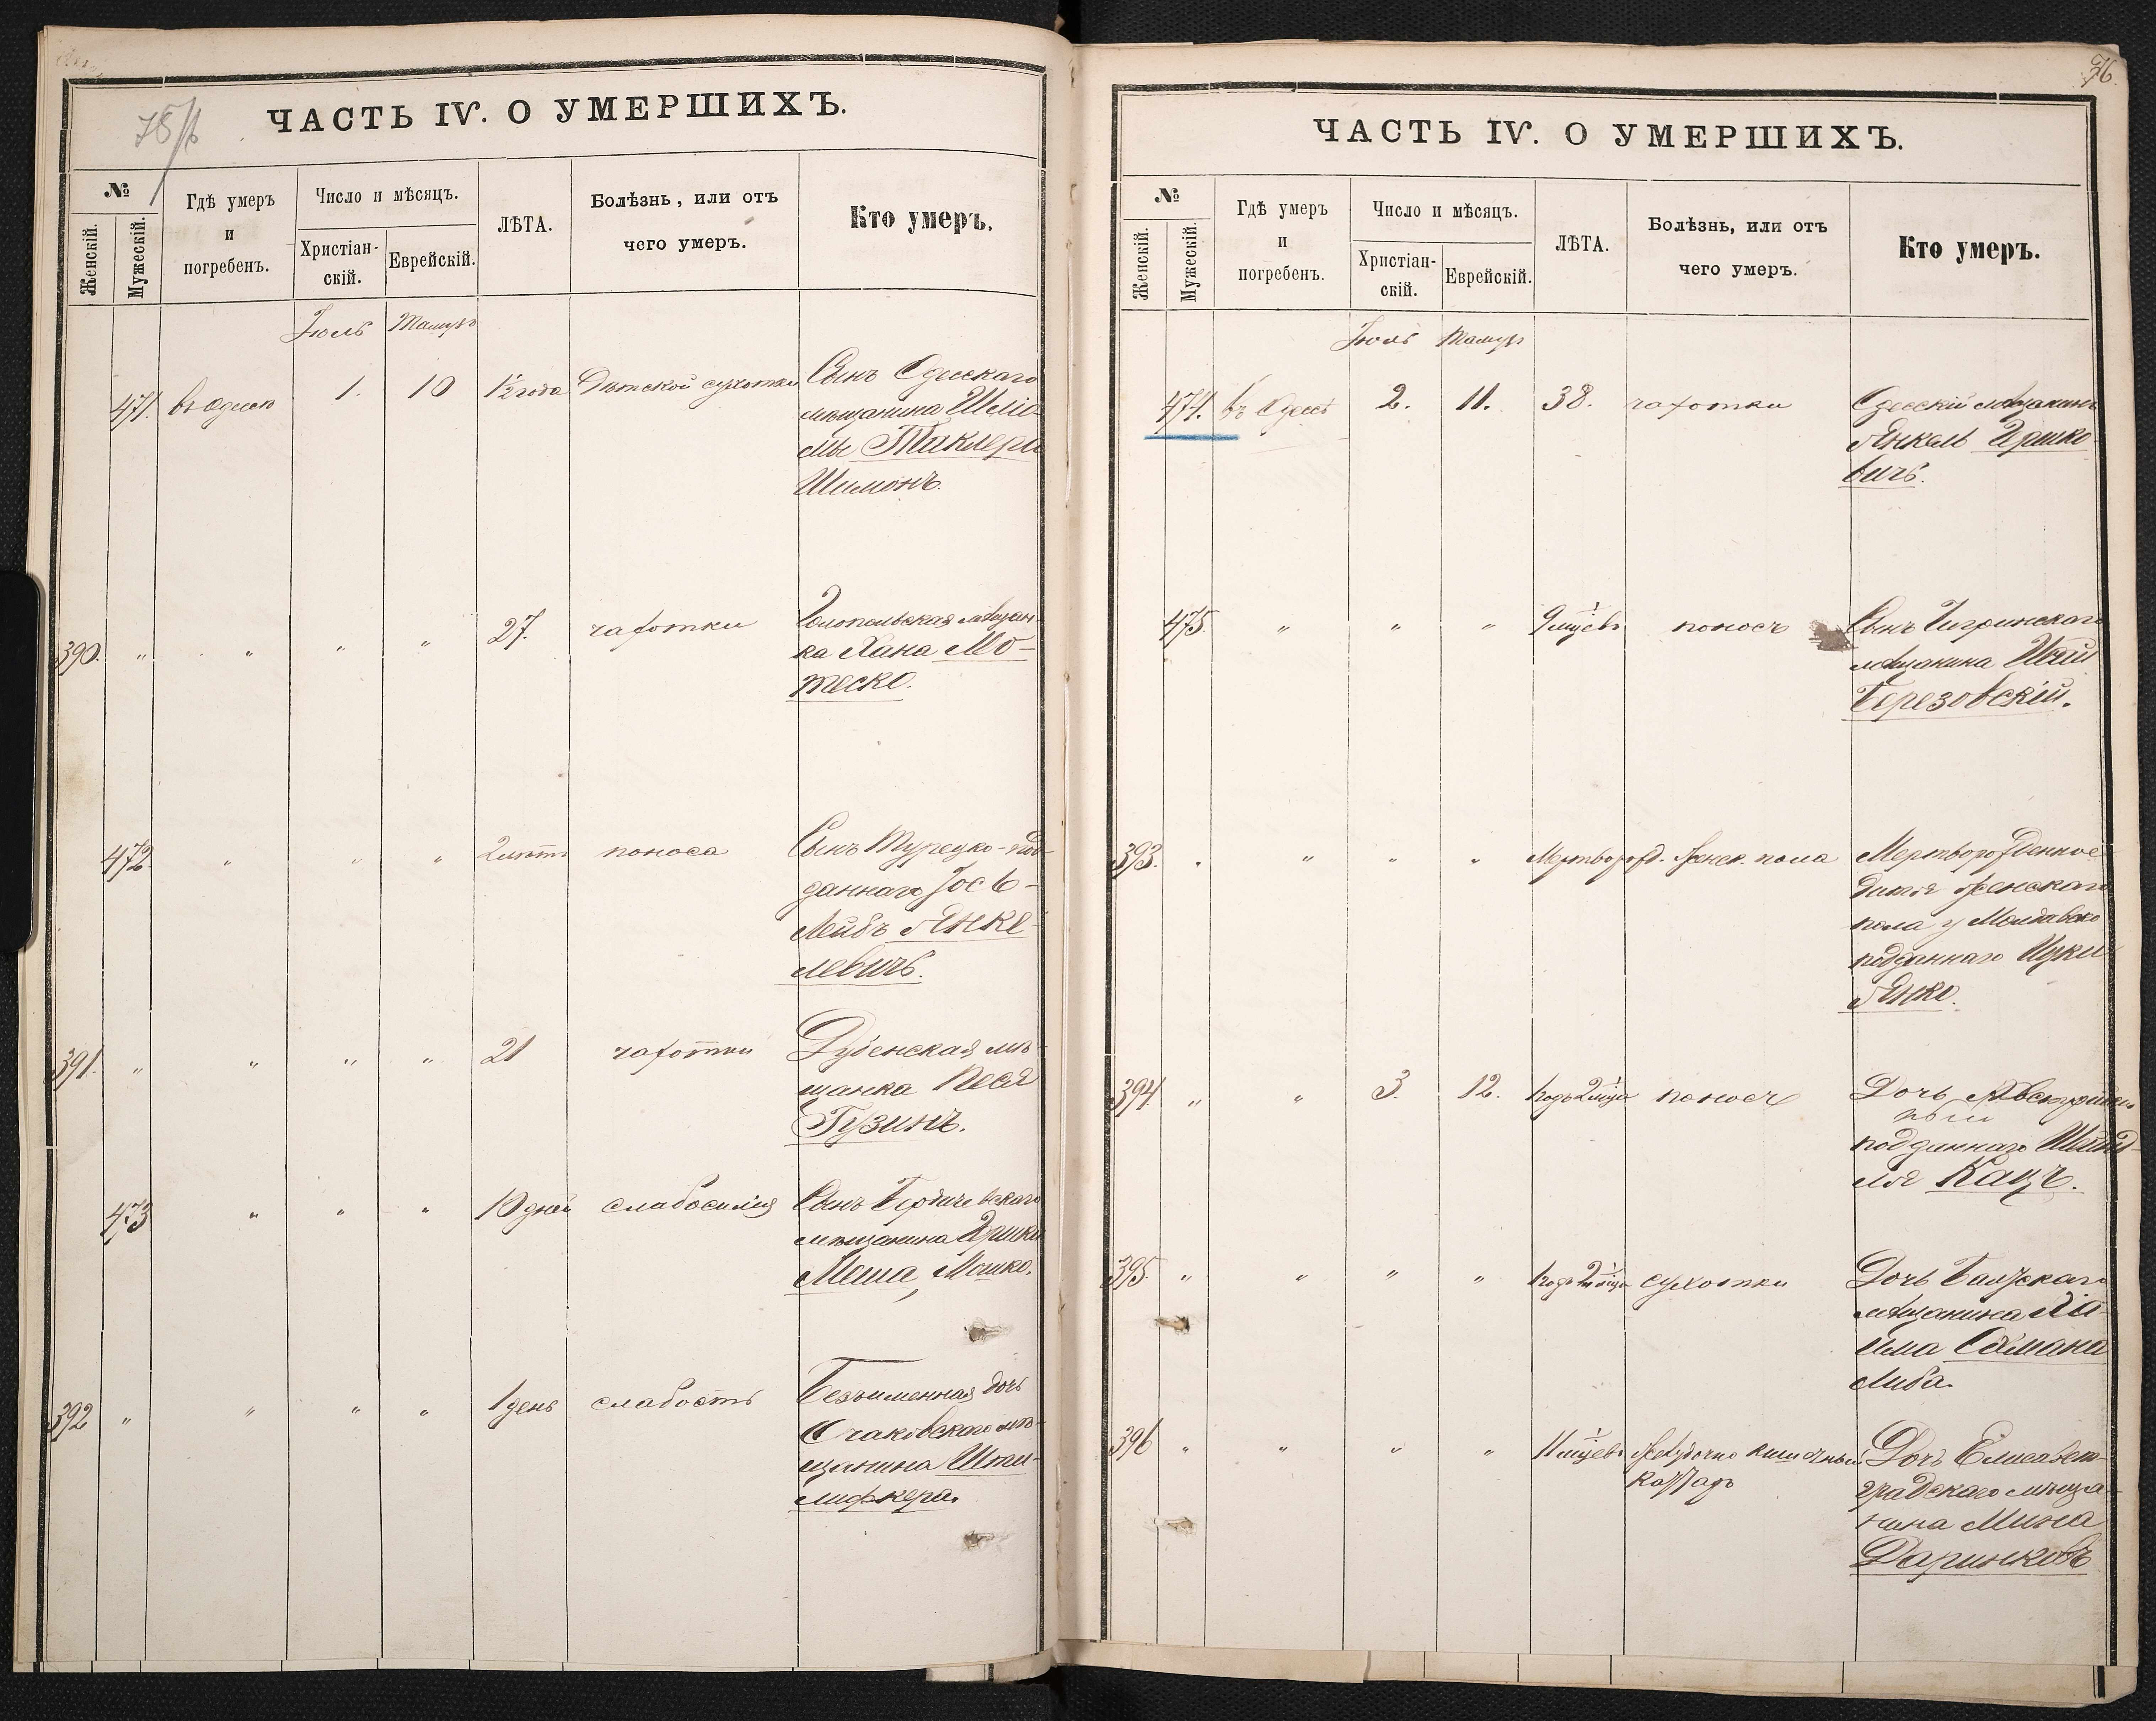 75/76
ЧАСТЬ IV. О УМЕРШИХЪ.
№
Женскій.
Мужескій.
Гдѣ умеръ
и
погребенъ.
Число и мѣсяцъ.
Христіан-
скій.
Еврейскій.
ЛѢТА.
Болѣзнь, или отъ
чего умеръ.
Кто умеръ.
Іюль Тамузъ
471. въ Одессѣ 1. 10 1½ года Дѣтской сухотки Сынъ Одесскаго
мѣщанина Шліо
мы Тиклера
Шимонъ.
390. " " " " 27. чахотки мѣщан-
ка Хана Мо-
теско.
472 " " " 2 лѣтъ поноса Сынъ Турецко-под-
даннаго Іось
Лейбъ Янке-
левичъ.
391. " " " " 21 чахотки Дубенская мѣ-
щанка Песя
Гузинъ.
473 " " " 10 дней слабосилія Сынъ Бердичевскаго
мѣщанина Ершки
Меша, Мошко.
392 " " " " 1 день слабость Безъименная дочь
Очаковскаго мѣ-
щанина Шпи-
лифкера.
76.
ЧАСТЬ IV. О УМЕРШИХЪ.
№
Женскій.
Мужескій.
Гдѣ умеръ
и
погребенъ.
Число и мѣсяцъ.
Христіан-
скій.
Еврейскій.
ЛѢТА.
Болѣзнь, или отъ
чего умеръ.
Кто умеръ.
Іюль Тамузъ
474. въ Одессѣ 2. 11. 38. чахотки Одесскій мѣщанинъ
Янкель Ершко-
вичъ.
475. " " " 9 мѣсцевъ поносъ Сынъ Чигринскаго
мѣщанина
Березовскій.
393. " " " " Мертворожд. женск. пола Мертворожденное
дитя женскаго
пола у Молдавско
подданнаго Ицки
Янко.
394. " " 3. 12. 1 годъ 2 мѣсца поносъ Дочь Австрійск
подданнаго Шейнд-
ля Кацъ.
395. " " " " 1 годъ 2 мѣсца сухотки Дочь Балтскаго
мѣщанина Ха-
има Охмана
Либа.
396 " " " " 11 мѣсцевъ Желудочно кишечный Дочь Елисавет-
каттаръ градскаго мѣща-
нина Мина
Даринковъ